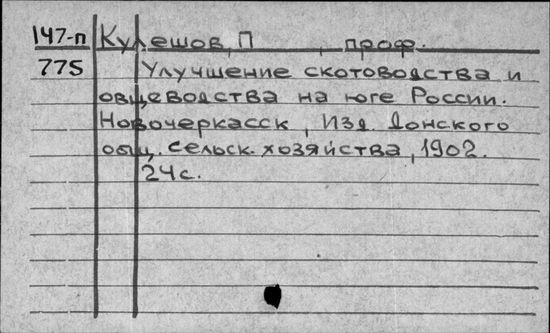 147-п Кулешов, П , проф.
775 Улучшение скотоводства и
овцеводства на юге России.
Новочеркасск, Изд. Донского
общ. сельск. хозяйства, 1902.
24 с.